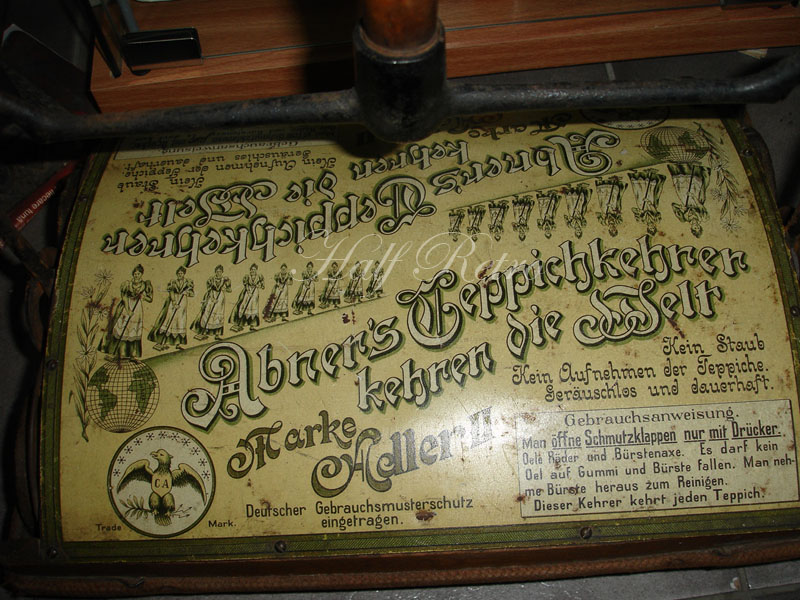 Abner's Teppichkehrer
kehren die Welt
Kein Staub
Kein Aufnehmen der Teppiche.
Geräuschlos und dauerhaft.
Marke
Adler II
Deutscher Gebrauchsmusterschutz
eingetragen.
C.A.
Trade Mark.
Gebrauchsanweisung.
Man öffne Schmutzklappen nur mit Drücker.
Oele Räder und Bürstenaxe. Es darf kein
Oel auf Gummi und Bürste fallen. Man neh-
me Bürste heraus zum Reinigen.
Dieser Kehrer kehrt jeden Teppich.
Abner's Teppichkehrer
kehren die Welt
Kein Staub
Kein Aufnehmen der Teppiche
Geräuschlos und dauerhaft
Marke
Gebrauchsanweisung
Half Retro